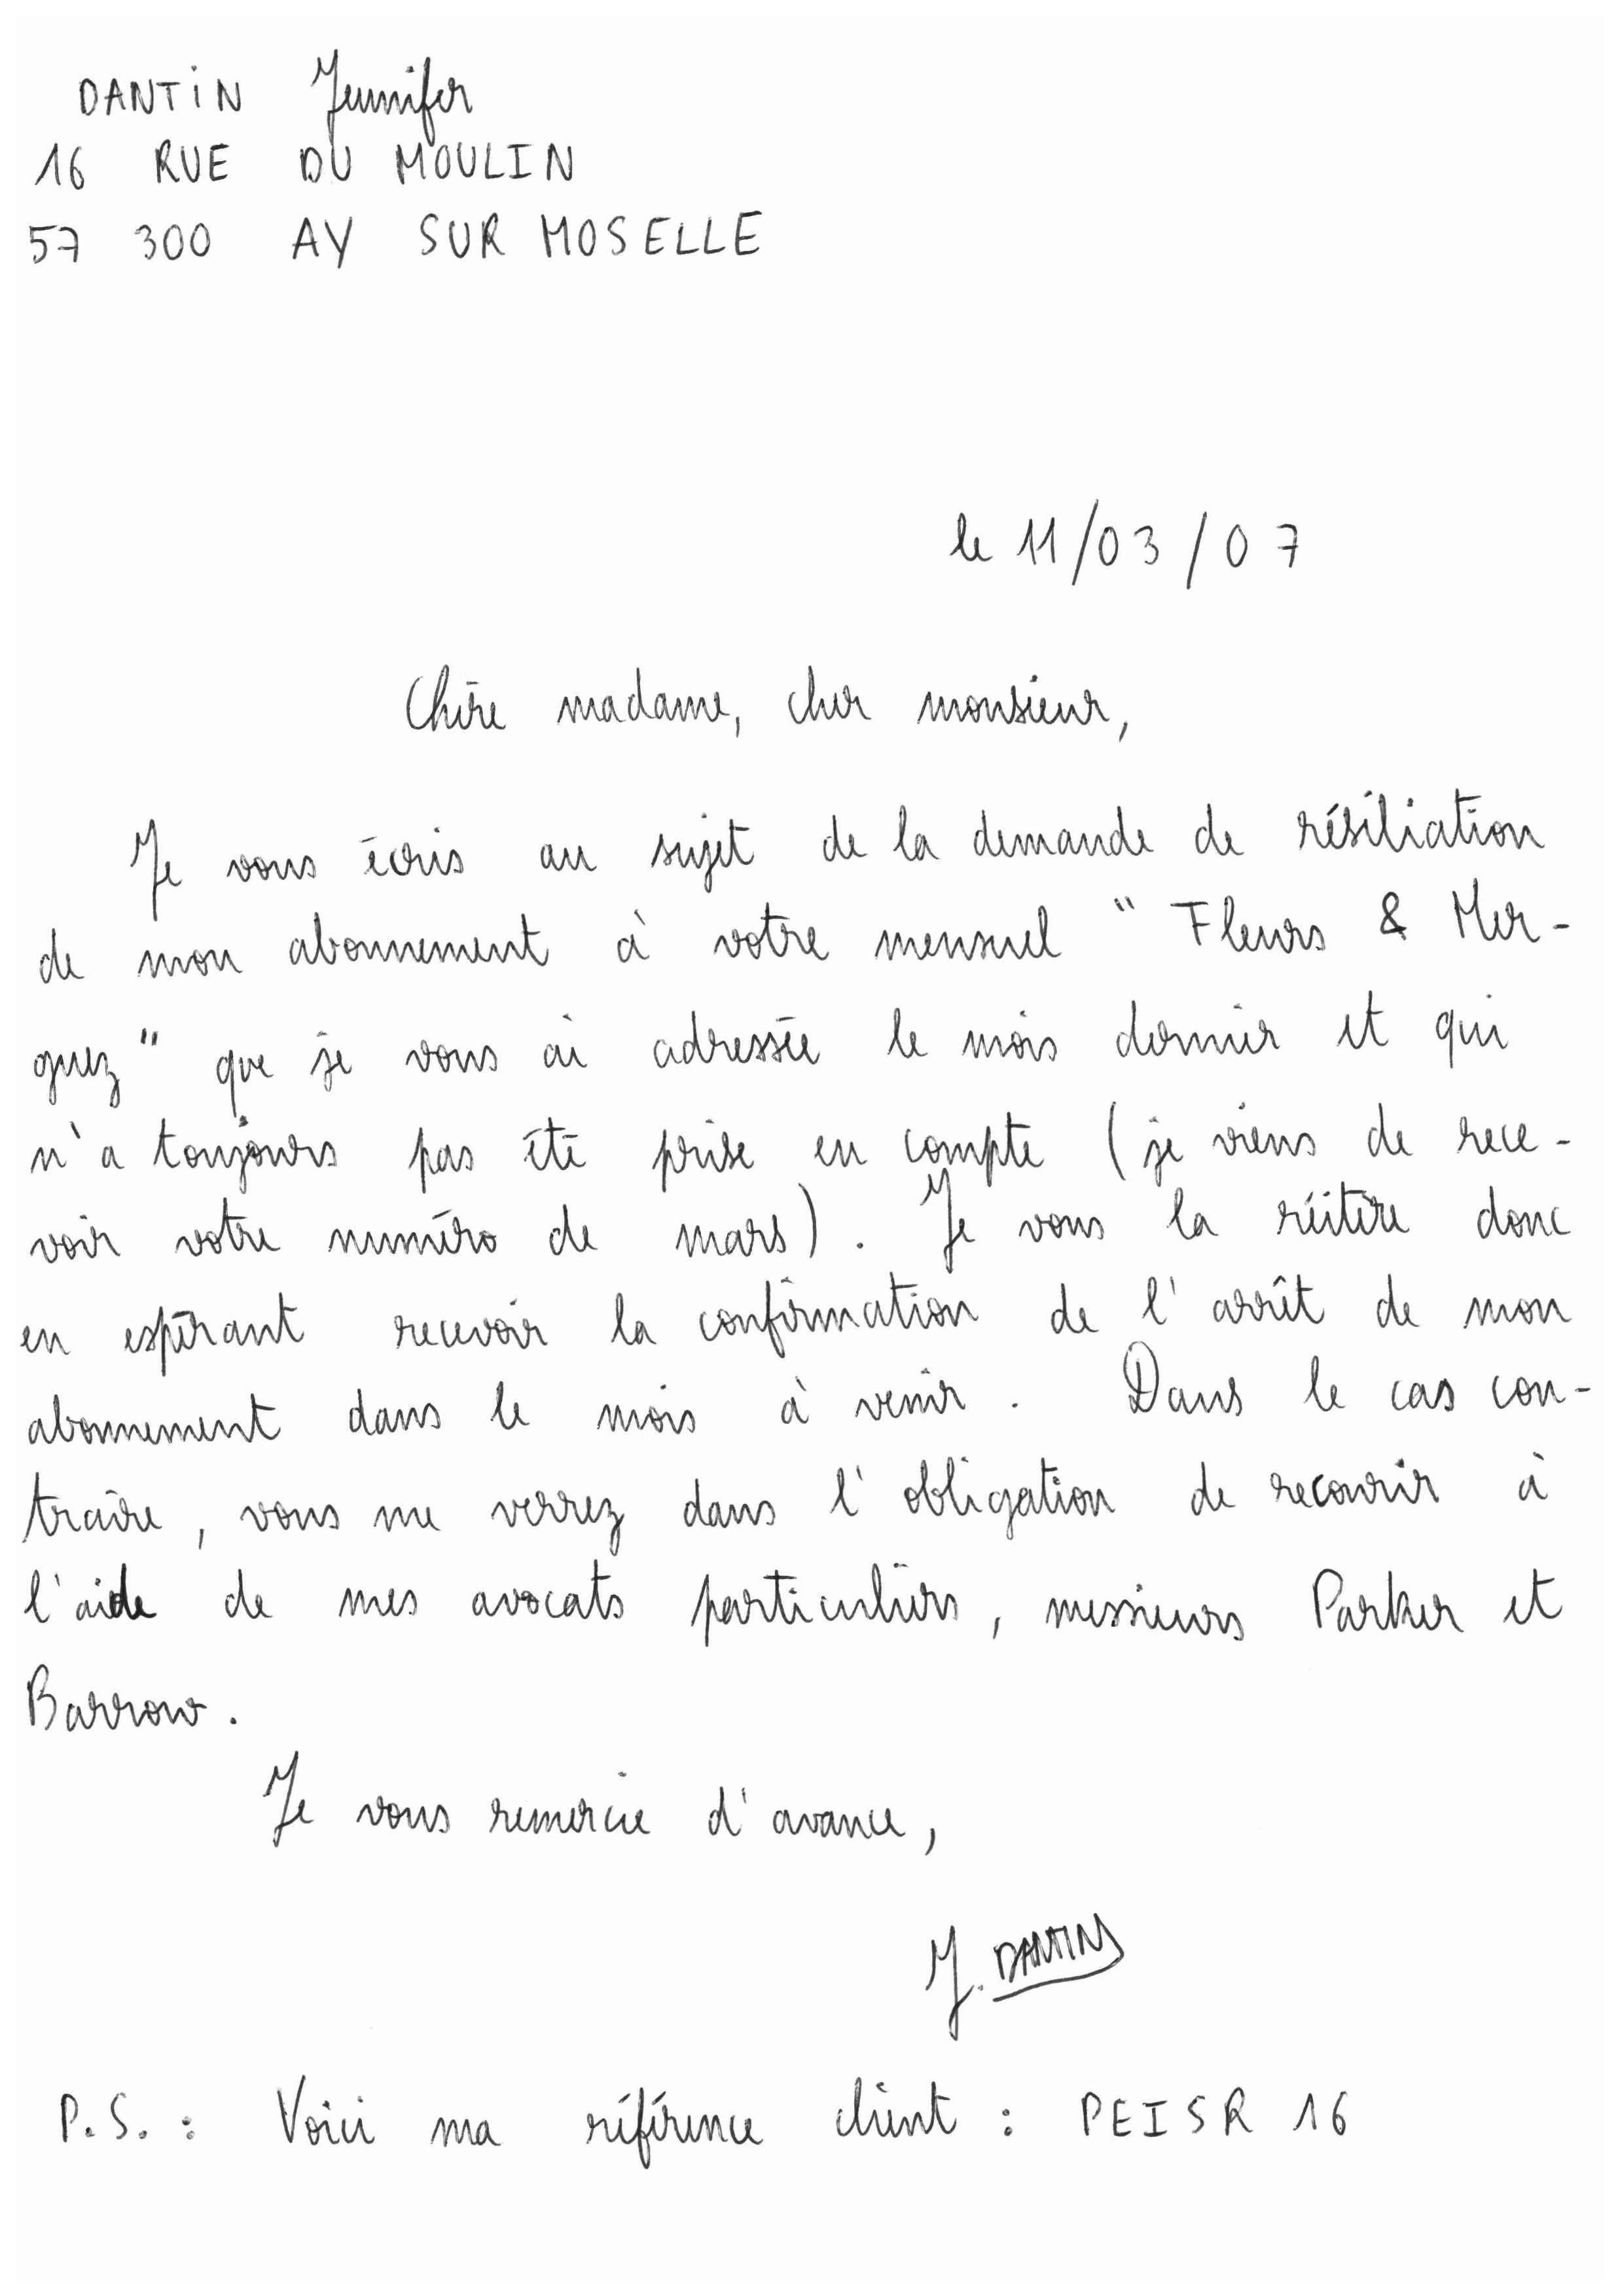 DANTIN Jennifer
16 RUE DU MOULIN
57 300 AY SUR MOSELLE
le 11/03/07
Chère madame, cher monsieur,
Je vous écris au sujet de la demande de résiliation
de mon abonnement à votre mensuel "Fleurs & Mer-
guez" que je vous ai adressée le mois dernier et qui
n'a toujours pas été prise en compte (je viens de rece-
voir votre numéro de mars). Je vous la réitère donc
en espérant recevoir la confirmation de l'arrêt de mon
abonnement dans le mois à venir. Dans le cas con-
traire, vous me verrez dans l'obligation de recourir à
l'aide de mes avocats particuliers, messieurs Parker et
Barrow.
Je vous remercie d'avance,
J. DANTIN
P.S. : Voici ma référence client : PEISR 16